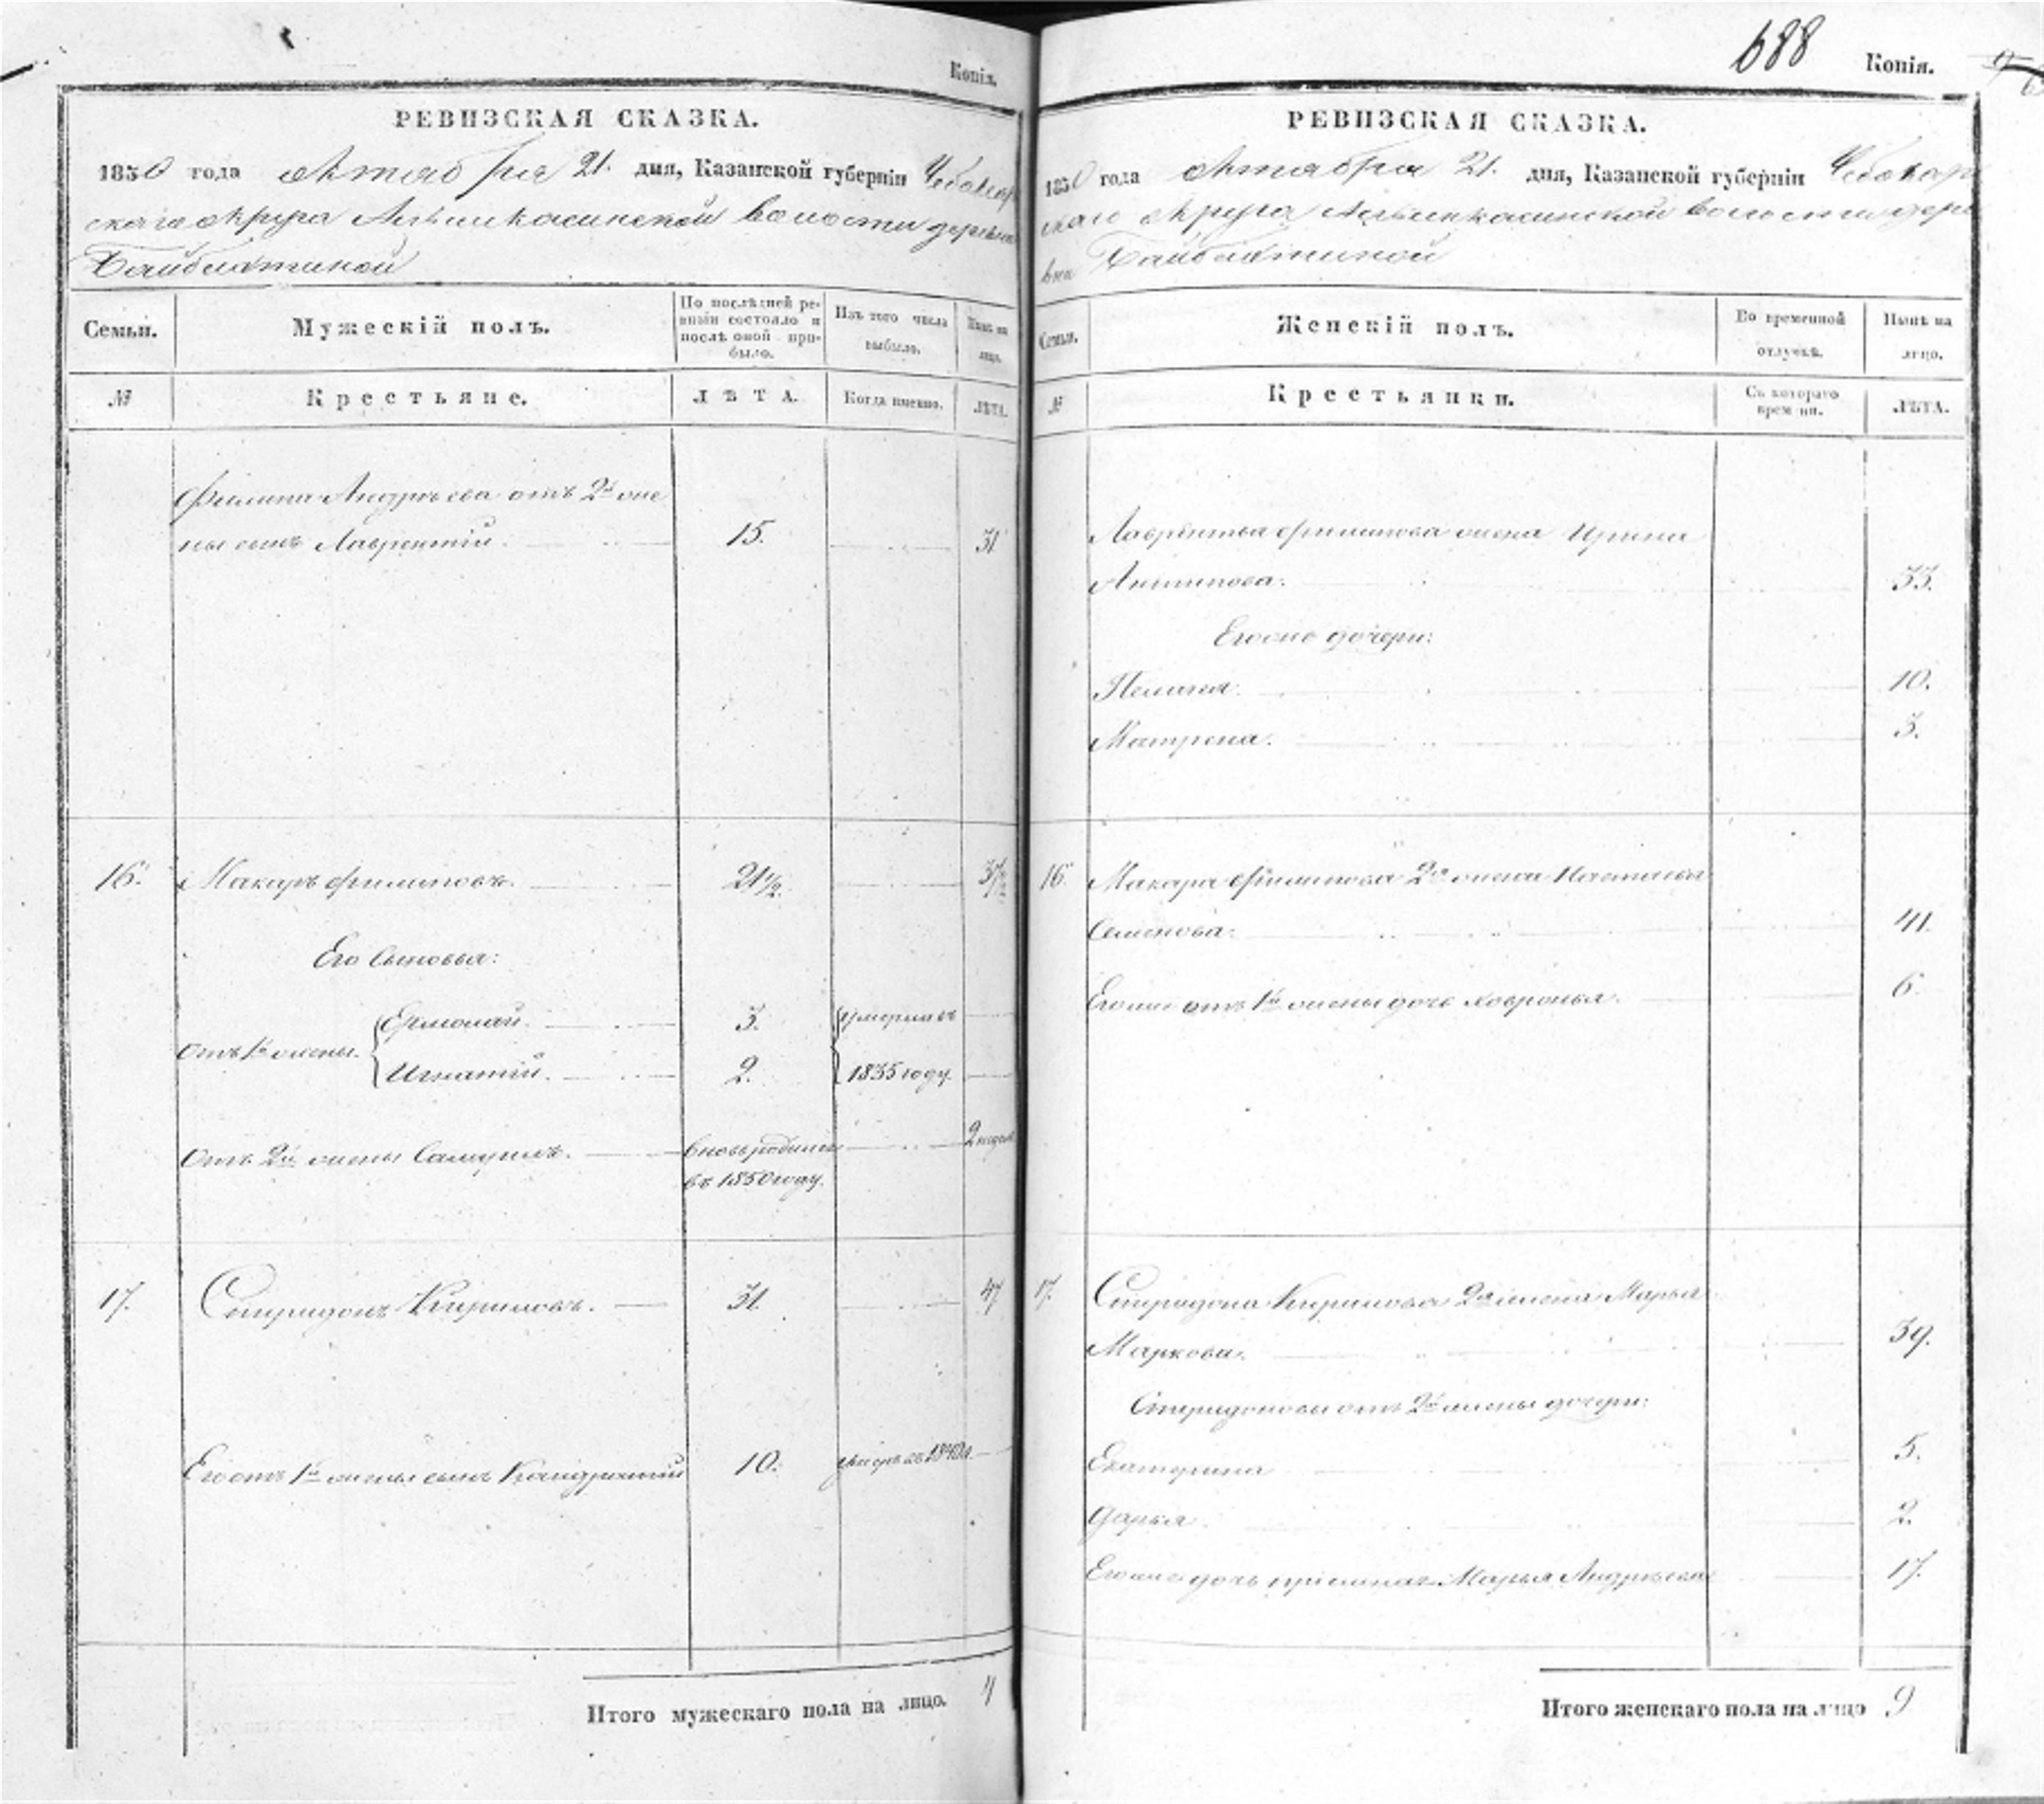 Копія.
РЕВИЗСКАЯ СКАЗКА.
1850 года Октября 21. дня, Казанской губерніи Чебоксар
скаго округа волости дерев
Байбахтиной
Семьи.
Мужескій полъ.
По послѣдней ре-
визіи состояло и
послѣ оной при-
было.
Изъ того числа
выбыло.
Нынѣ на
лицо.
№
Крестьяне.
ЛѢТА.
Когда именно.
ЛѢТА.
Филипа Андрѣева отъ 2й же
ны сынъ Лаврентій. 15. 31
16. Макаръ Филиповъ. 21½. 37½
Его Сыновья:
Отъ 1й жены. Ермолай. 3. умерли въ
Игнатій. 2. 1835 году.
Отъ 2й жены Самуилъ. вновь родился 2 недел
въ 1850 году.
17. Спиридонъ Кириловъ. 31. 47
Его отъ 1й жены сынъ Кондратій 10. умеръ въ
Итого мужескаго пола на лицо. 4
688
Копія.
РЕВИЗСКАЯ СКАЗКА.
1850 года Октября 21. дня, Казанской губерніи Чебоксар
скаго округа волости дере
вни Байбахтиной
Семьи.
Женскій полъ.
Во временной
отлучкѣ.
Нынѣ на
лицо.
№
Крестьянки.
Съ котораго
времени.
ЛѢТА.
Лаврентья Филипова жена Ирина
Антипова. 33.
Его же дочери:
Пелагея. 10.
Матрена. 3.
16. Макара Филипова 2я жена Настасья
Семенова. 41.
Его же отъ 1й жены дочь Ховронья. 6.
17. Спиридона Кирилова 2я жена Марья
Маркова. 39.
Спиридоновы отъ 2й жены дочери:
Екатерина 5.
Дарья. 2.
Его же дочь приемная Марья Андрѣева 17.
Итого женскаго пола на лицо 9